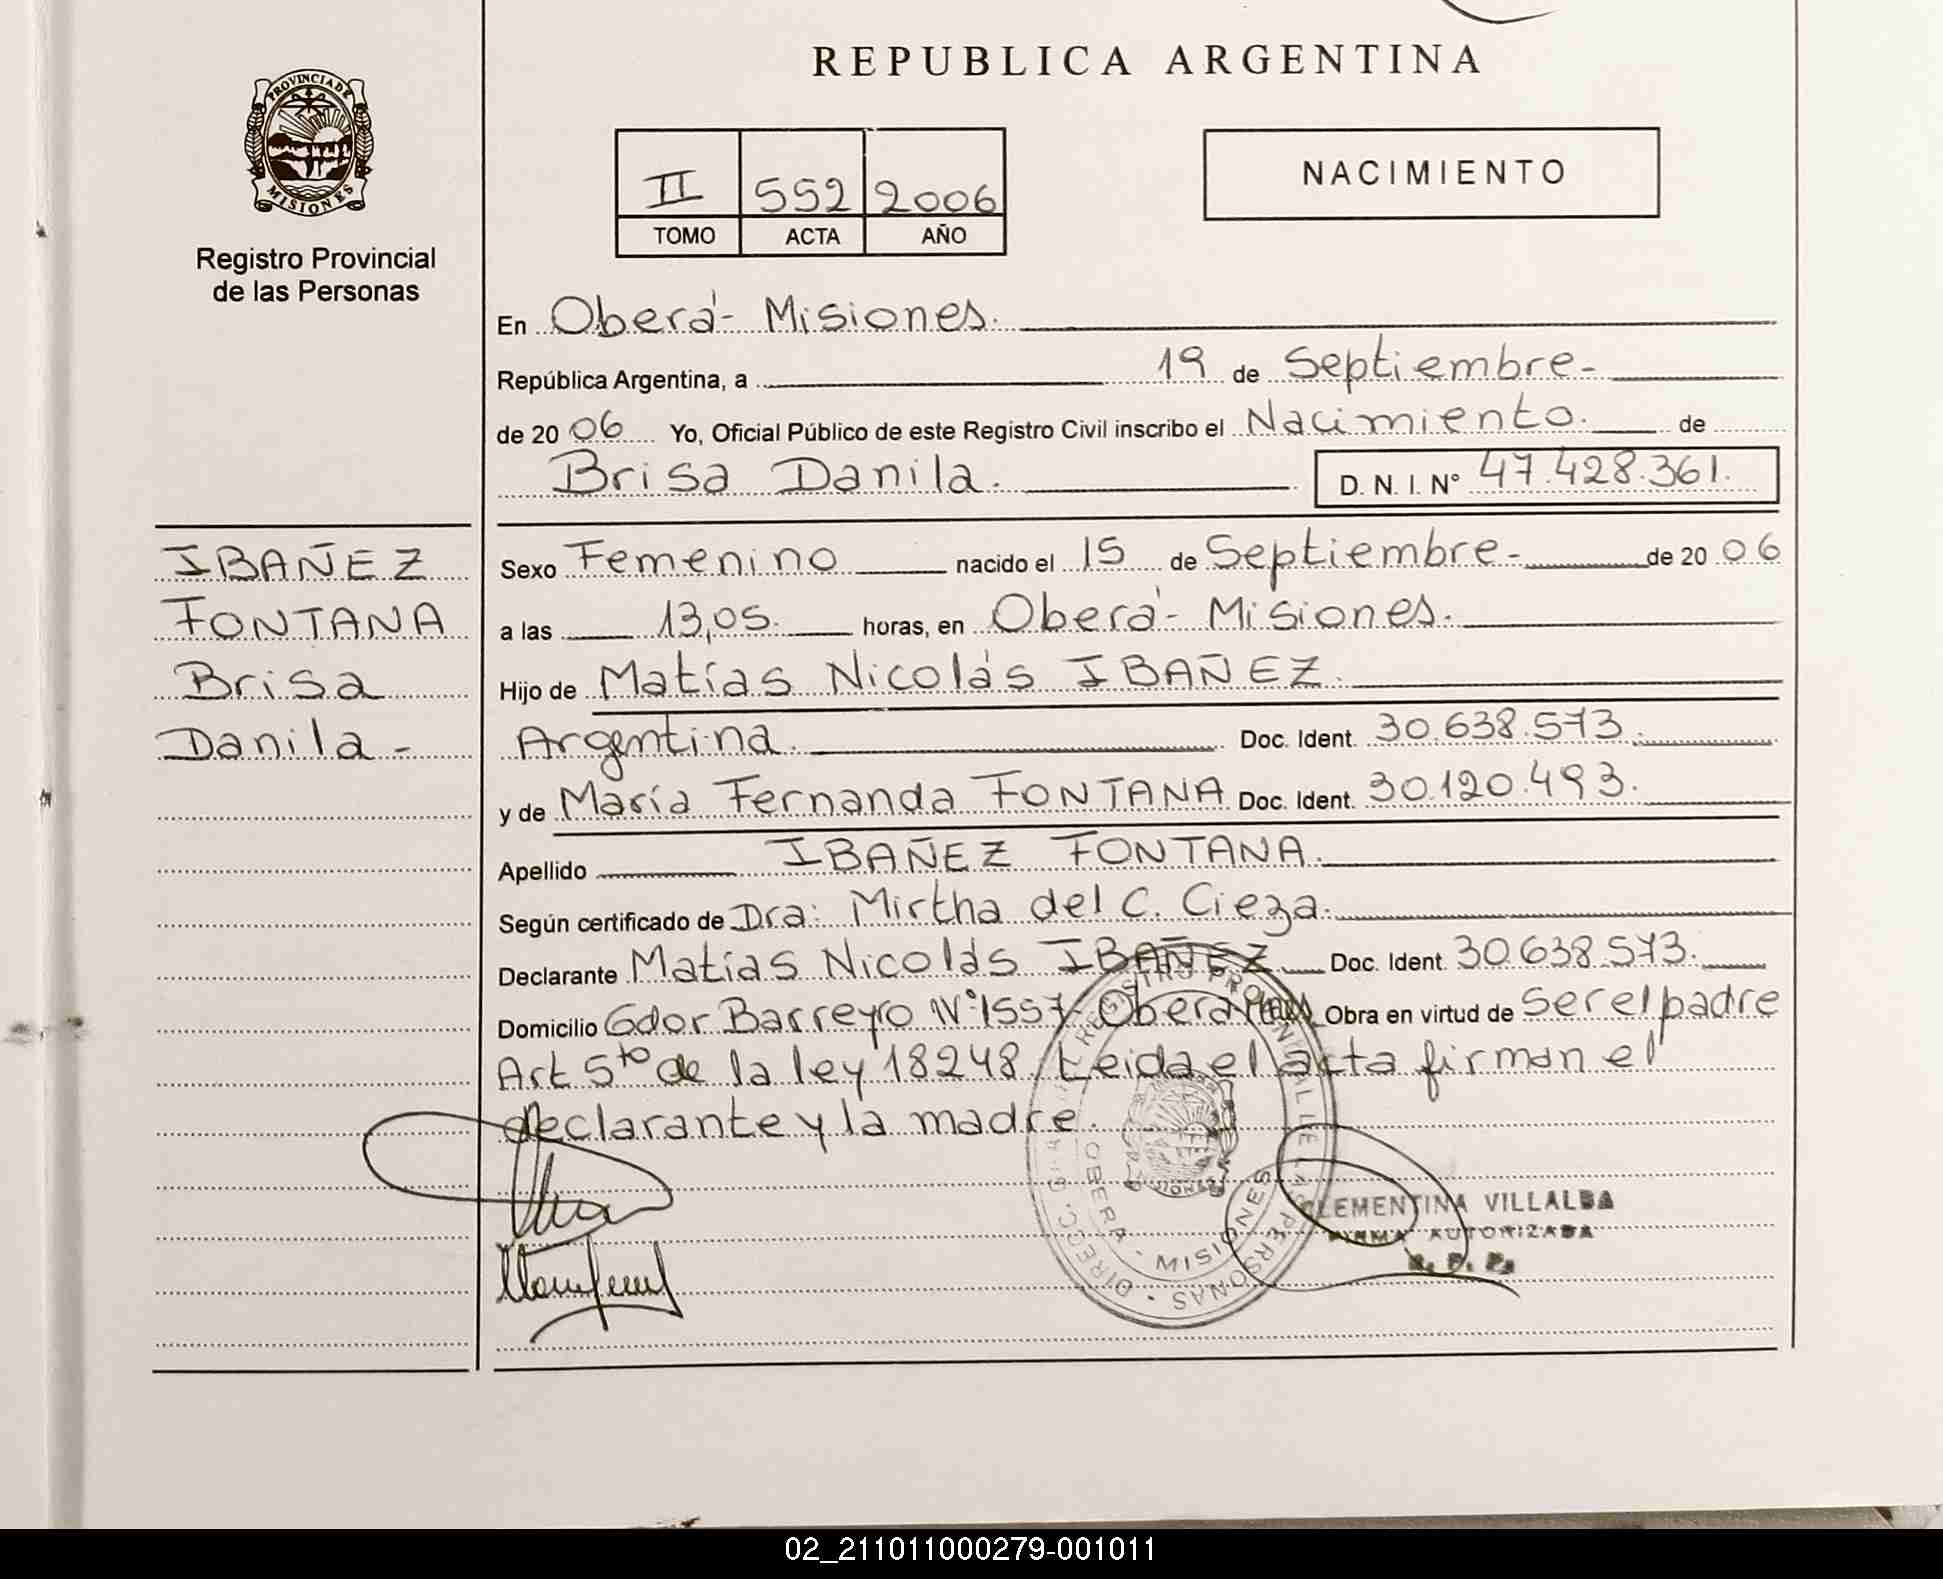 REPUBLICA ARGENTINA
PROVINCIA DE
MISIONES
Registro Provincial
de las Personas
II 552 2006
TOMO ACTA AÑO
NACIMIENTO
En Oberá - Misiones.
República Argentina, a 19 de Septiembre -
de 20 06 Yo, Oficial Público de este Registro Civil inscribo el Nacimiento. de
Brisa Danila. D. N. I. N° 47.428.361.
IBAÑEZ
FONTANA
Brisa
Danila -
Sexo Femenino nacido el 15 de Septiembre - de 20 06
a las 13,05. horas, en Oberá - Misiones.
Hijo de Matías Nicolás IBAÑEZ.
Argentina. Doc. Ident. 30.638.573.
y de María Fernanda FONTANA Doc. Ident. 30.120.493.
Apellido IBAÑEZ FONTANA.
Según certificado de Dra: Mirtha del C. Cieza.
Declarante Matías Nicolás IBAÑEZ Doc. Ident. 30.638.573.
Domicilio Gdor Barreyro N° 1557- Oberá Obra en virtud de Ser el padre
Art 5to de la ley 18248. Leida el acta firman el
declarante y la madre.
CLEMENTINA VILLALBA
FIRMA AUTORIZADA
R. P. P.
OBERA - MISIONES
02_211011000279-001011